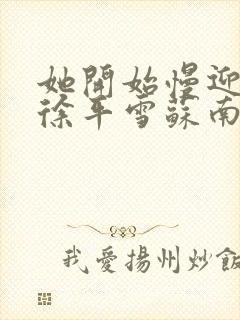 她開始慢迎
徐年雪蘇南
我愛揚州炒飯